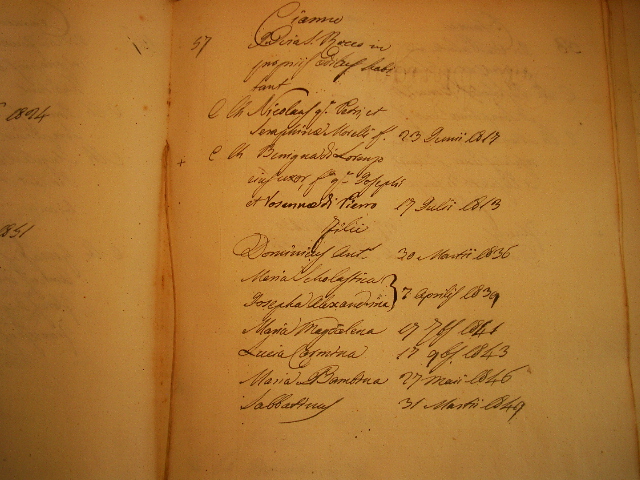 1824
1851
Cianno
57
Via S. Rocco in
propriis habi
tant
C Ch Nicolaus q.m Petri et
Seraphina Morelli f. 23 Junii 1817
+ C Ch Benigna di Lorenzo
ejus uxor, f. q.m Josephi
et Joannæ di Pierro 17 Julii 1813
Filii
Dominicus Ant.s 20 Martii 1836
Maria Scholastica
Josepha Alexandrina } 7 Aprilis 1839
Maria Magdalena 17 7bris 1841
Lucia Carmina 17 9bris 1843
Maria Bambina 27 Maii 1846
Sabbatinus 31 Martii 1849